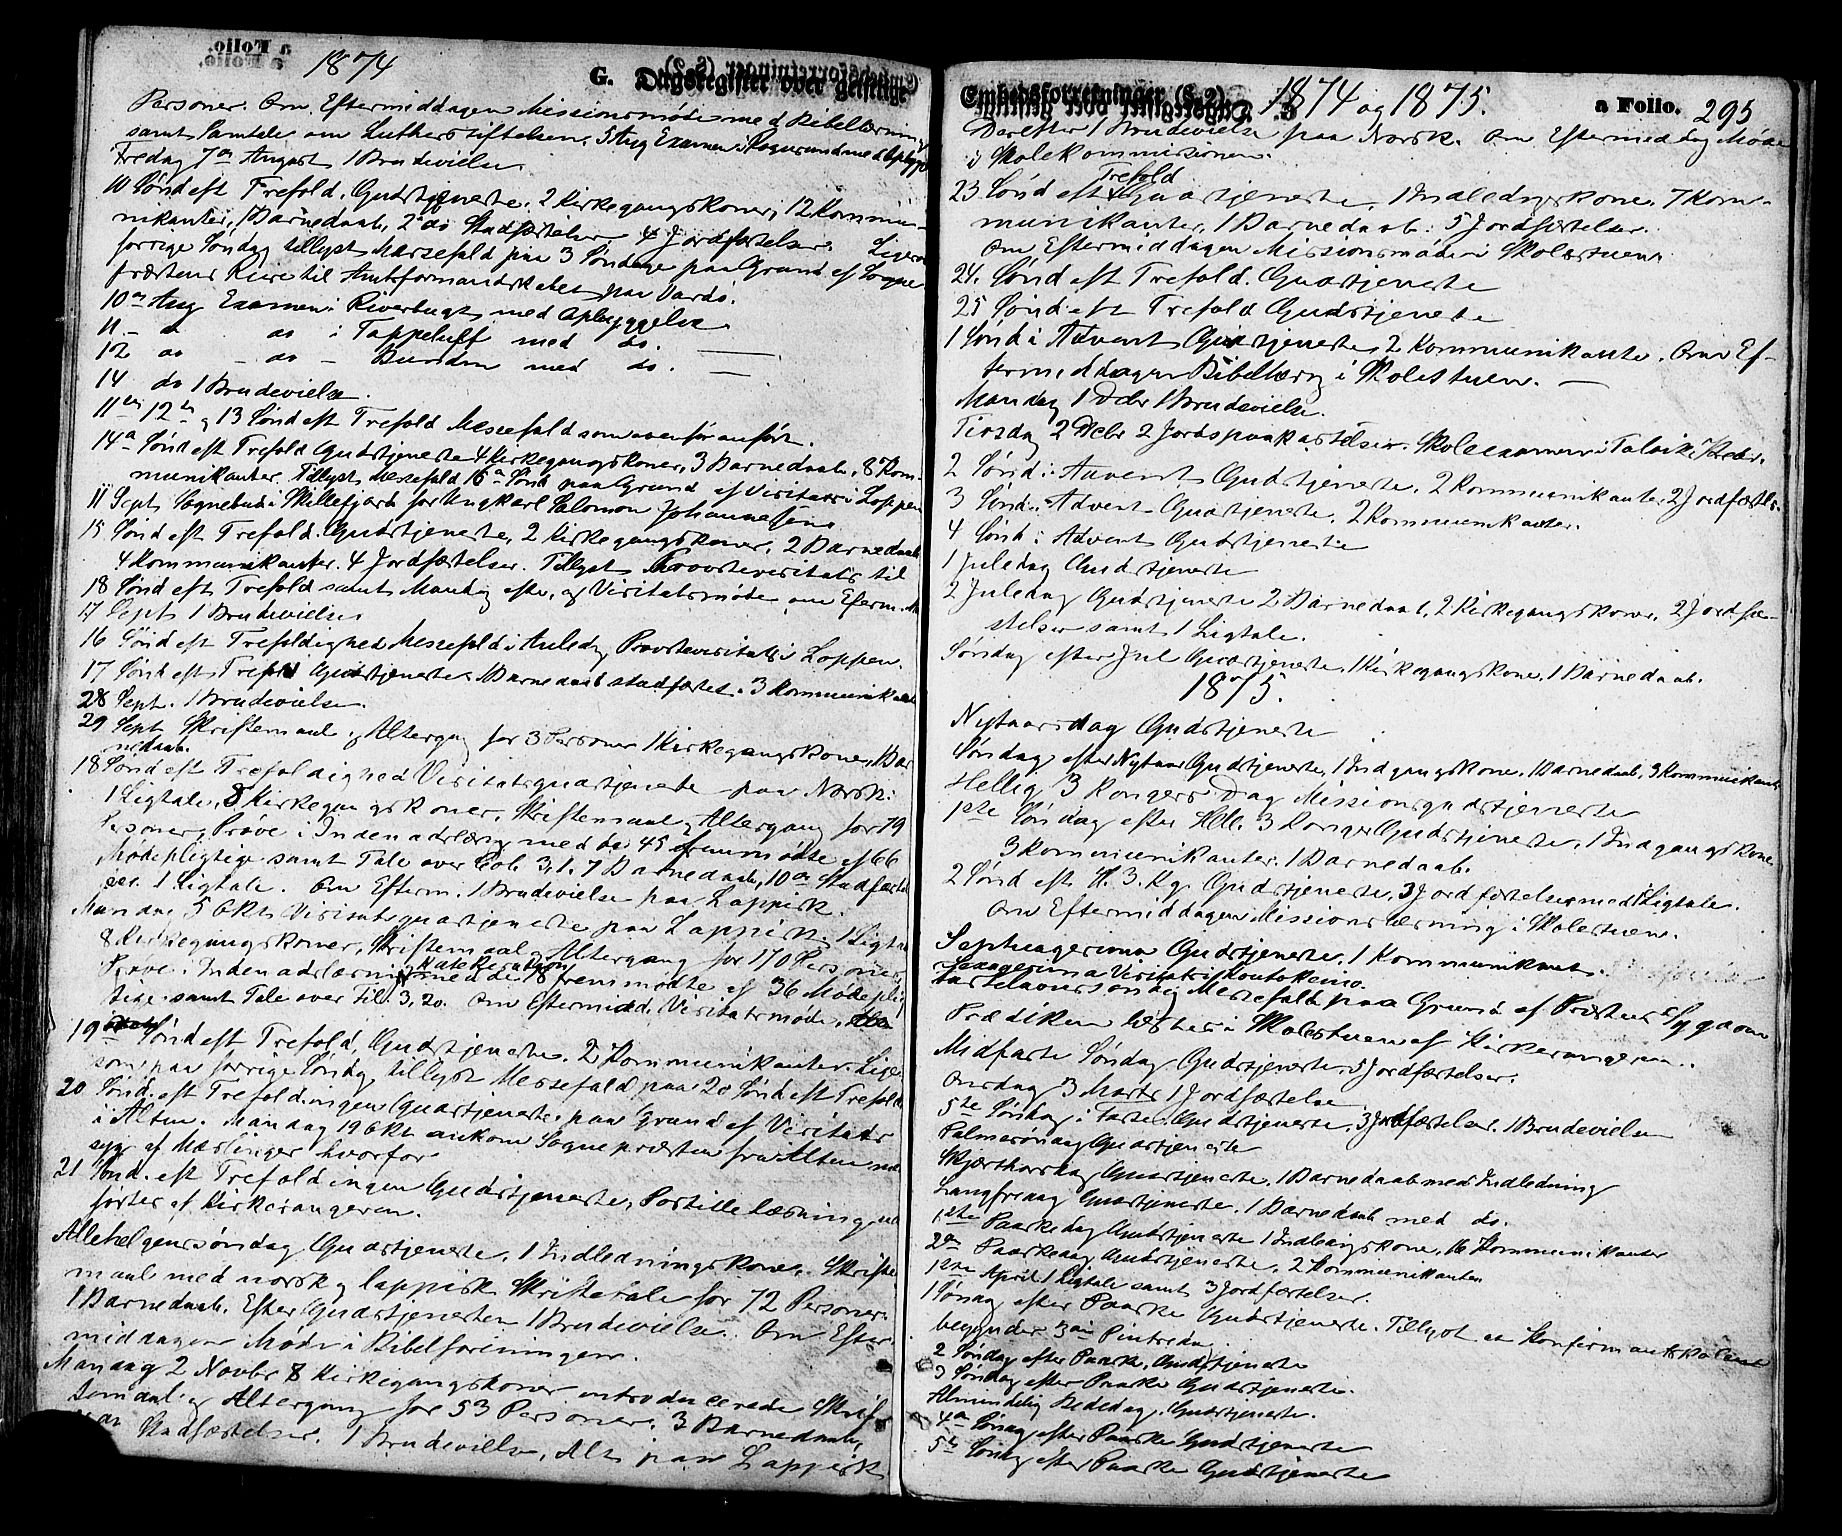 1874
G. Dagsregister over geistlige
Personer. Om Eftermiddagen Missionsmøde med Bibellæsning
samt Samtale om Lutherstiftelsen. 5 Aug Examen i med Opbygg
Fredag 7de August 1 Brudevielse
10 Sønd eft Trefold. Gudstjeneste. 2 Kirkegangskoner, 12 Kommu-
nikanter, 1 Barnedaab, 2 do Stadfæstelser 4 Jordfæstelser. Ligesom
forrige Søndag tillyst Messefald paa 3 Søndage paa Grund af Sogne-
præstens Reise til Amtsformandskabet paa Vardø.
10de Aug Examen i Riverbugt med Opbyggelse
11 - do - do i Tappeluft med do.
12 do - do - Bursden med do.
14 do 1 Brudevielse.
11te, 12te og 13 Sønd eft Trefold Messefald som ovenfor anført.
14de Sønd eft Trefold Gudstjeneste 4 Kirkegangskoner, 3 Barnedaab, 8 Kom-
munikanter. Tillyst Messefald 16de Sønd paa Grund af Visitats i Loppen
11 Sept Sognebud i Skillefjord for Ungkarl Salomon Johannesen
15 Sønd eft Trefold. Gudstjeneste, 2 Kirkegangskoner, 2 Barnedaab
4 Kommunikanter. 4 Jordfæstelser. Tillyst Provstevisitats til
18 Sønd eft Trefold samt Mandag efter, og Visitatsmøde om Efterm.
17 Sept 1 Brudevielse
16 Sønd eft Trefoldighed Messefald i Anledng Provstevisitats i Loppen.
17 Sønd eft Trefold Gudstjeneste 1 Barnedaab stadfæstet. 3 Kommunikant
28 Sept. 1 Brudevielse.
29 Sept Skriftemaal og Altergang for 3 Personer 1 Kirkegangskone, 1 Bar
nedaab.
18 Sønd eft Trefoldighed Visitatsgudstjeneste paa Norsk:
1 Ligtale, 8 Kirkegangskoner, Skriftemaal og Altergang for 79
Personer, Prøve i Indenadslæsng med de 45 fremmødte af 66
Mødepligtige samt Tale over Col. 3,1. 7 Barnedaab, 10de Stadfæst
1 Ligtale. Om Efterm. 1 Brudevielse paa Lappisk.
Mandag 5 Okt. Visitatsgudstjeneste paa Lappisk, 1 Ligtale
8 Kirkegangskoner, Skriftemaal og Altergang for 170 Personer,
Katekisation
Prøve i Indenadslæsning med de 18 fremmødte af 36 Mødeplig
tige samt Tale over Fil. 3, 20. Om Eftermidd. Visitatsmøde.
19de Sønd eft Trefold. Gudstjeneste. 2 Kommunikanter. Lige
som paa forrige Søndg tillyst Messefald paa 20 Sønd eft Trefold
20 Sønd. eft Trefold ingen Gudstjeneste paa Grund af Visitats
i Alten. Mandag 19 Okt ankom Sognepræsten fra Alten
syg af Mæslinger hvorfor
21 Sønd. eft Trefold ingen Gudstjeneste, Postillelæsning
fortes af Kirkesangeren.
Allehelgenssøndag Gudstjeneste, 1 Indledningskone, Skrifte
maal med norsk og lappisk Skriftetale for 72 Personer
1 Barnedaab. Efter Gudstjenesten 1 Brudevielse. Om Efter
middagen Møde i Bibelforeningen.
Mandag 2 Novbr 8 Kirkegangskoner introducerede Skrif
temaal og Altergang for 53 Personer, 3 Barnedaab,
Stadfæstelser. 1 Brudevielse, Alt paa Lappisk
Embedsforretninger (§ 2) 1874 og 1875. a Folio. 295
Derefter 1 Brudevielse paa Norsk. Om Eftermiddag Møde
i Skolekommissionen.
23 Sønd eft Trefold Gudstjeneste, 1 Indledngskone, 7 Kom-
munikanter, 1 Barnedaab. 5 Jordfæstelser.
Om Eftermiddagen Missionsmøde i Skolestuen.
24. Sønd eft Trefold. Gudstjeneste
25 Sønd eft Trefold Gudstjeneste
1 Sønd i Advent Gudstjeneste 2 Kommunikanter. Om Ef-
termiddagen Bibellæsng i Skolestuen.
Mandag 1 Decbr 1 Brudevielse.
Tirsdag 2 Decbr 2 Jordspaakastelser. Skoleexamen i Talvik
2 Sønd i Advent Gudstjeneste, 2 Kommunikanter 2 Jordfæstelser
3 Sønd i Advent Gudstjeneste, 2 Kommunikanter.
4 Sønd i Advent Gudstjeneste
1 Juledag Gudstjeneste
2 Juledag Gudstjeneste 2 Barnedaab, 2 Kirkegangskoner, 2 Jordfæ-
stelser samt 1 Ligtale.
Søndag efter Jul Gudstjeneste, 1 Kirkegangskone, 1 Barnedaab.
1875.
Nytaarsdag Gudstjeneste
Søndag efter Nytaar Gudstjeneste, 1 Indgangskone, 1 Barnedaab, 3 Kommunikanter
Hellig 3 Kongers Dag Missionsgudstjeneste
1ste Søndag efter Hell. 3 Konger Gudstjeneste, 1 Indgangskone
3 Kommunikanter. 1 Barnedaab.
2 Sønd eft H. 3. Kg. Gudstjeneste, 3 Jordfæstelser med 1 Ligtale.
Om Eftermiddagen Missionslæsning i Skolestuen.
Septuagesima Gudstjeneste, 1 Kommunikant.
Sexagesima Visitats i Koutokeino.
Fastelavnssøndag Messefald paa Grund af Præstens Sygdom
Prædiken læstes i Skolestuen af Kirkesangeren..
Midfaste Søndag Gudstjeneste, 5 Jordfæstelser.
Onsdag 3 Marts 1 Jordfæstelse
5te Søndag i Faste Gudstjeneste, 3 Jordfæstelser. 1 Brudevielse
Palmesøndag Gudstjeneste
Skjærthorsdag Gudstjeneste. 1 Barnedaab med Indledning
Langfredag Gudstjeneste. 1 Barnedaab med do.
1ste Paaskedag Gudstjeneste 1 Indledngskone, 16 Kommunikanter
2den Paaskedag Gudstjeneste, 2 Kommunikanter
1ste April 1 Ligtale samt 3 Jordfæstelser.
1 Søndag efter Paaske Gudstjeneste. Tillyst at Konfirmantskolen
begynder 3die Pintsedag.
2 Søndag efter Paaske, Gudstjeneste
3 Søndag efter Paaske Gudstjeneste.
Almindelig Bededag. Gudstjeneste.
4de Søndag efter Paaske Gudstjeneste
5te Søndag efter Paaske Gudstjeneste